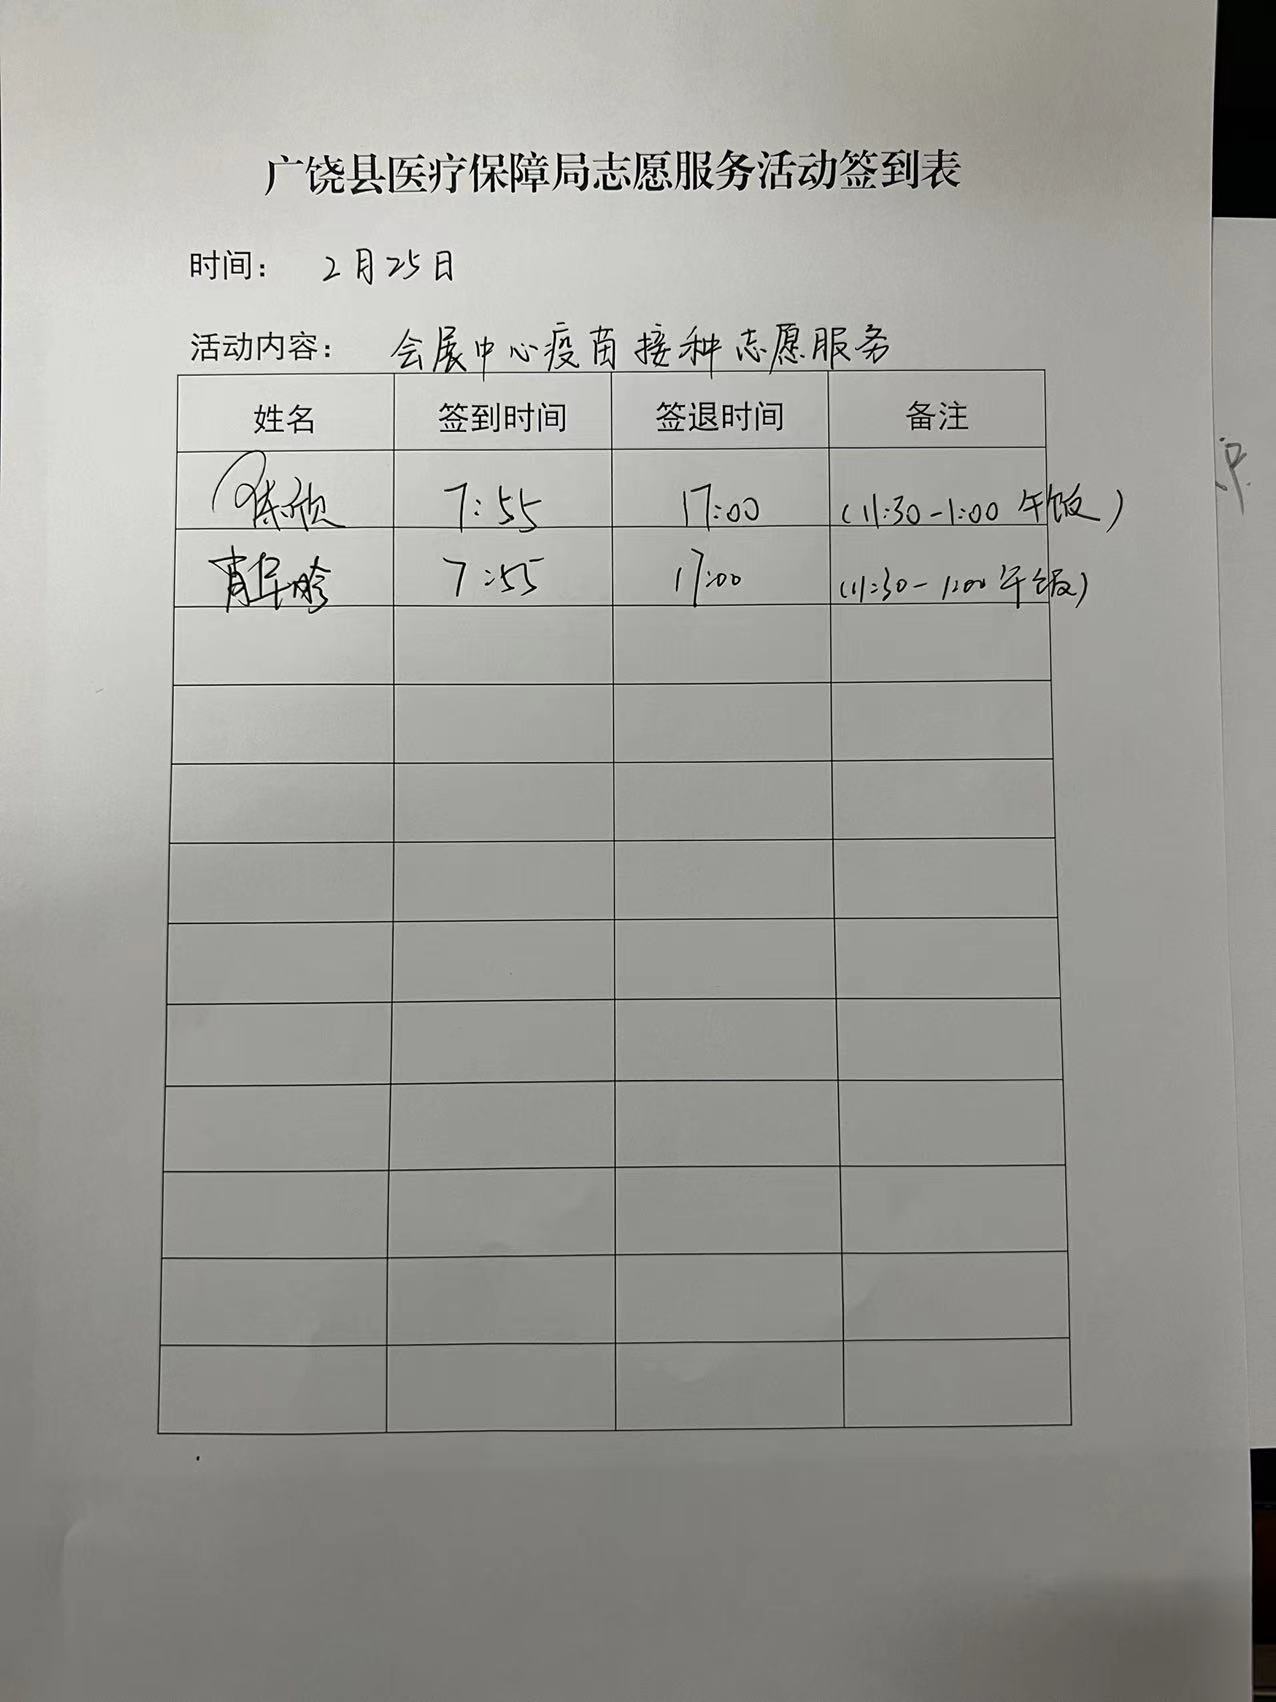 广饶县医疗保障局志愿服务活动签到表
时间： 2月25日
活动内容： 会展中心疫苗接种志愿服务
姓名 签到时间 签退时间 备注
7:55 17:00 (11:30-1:00 午饭)
7:55 17:00 (11:30-1:00 午饭)